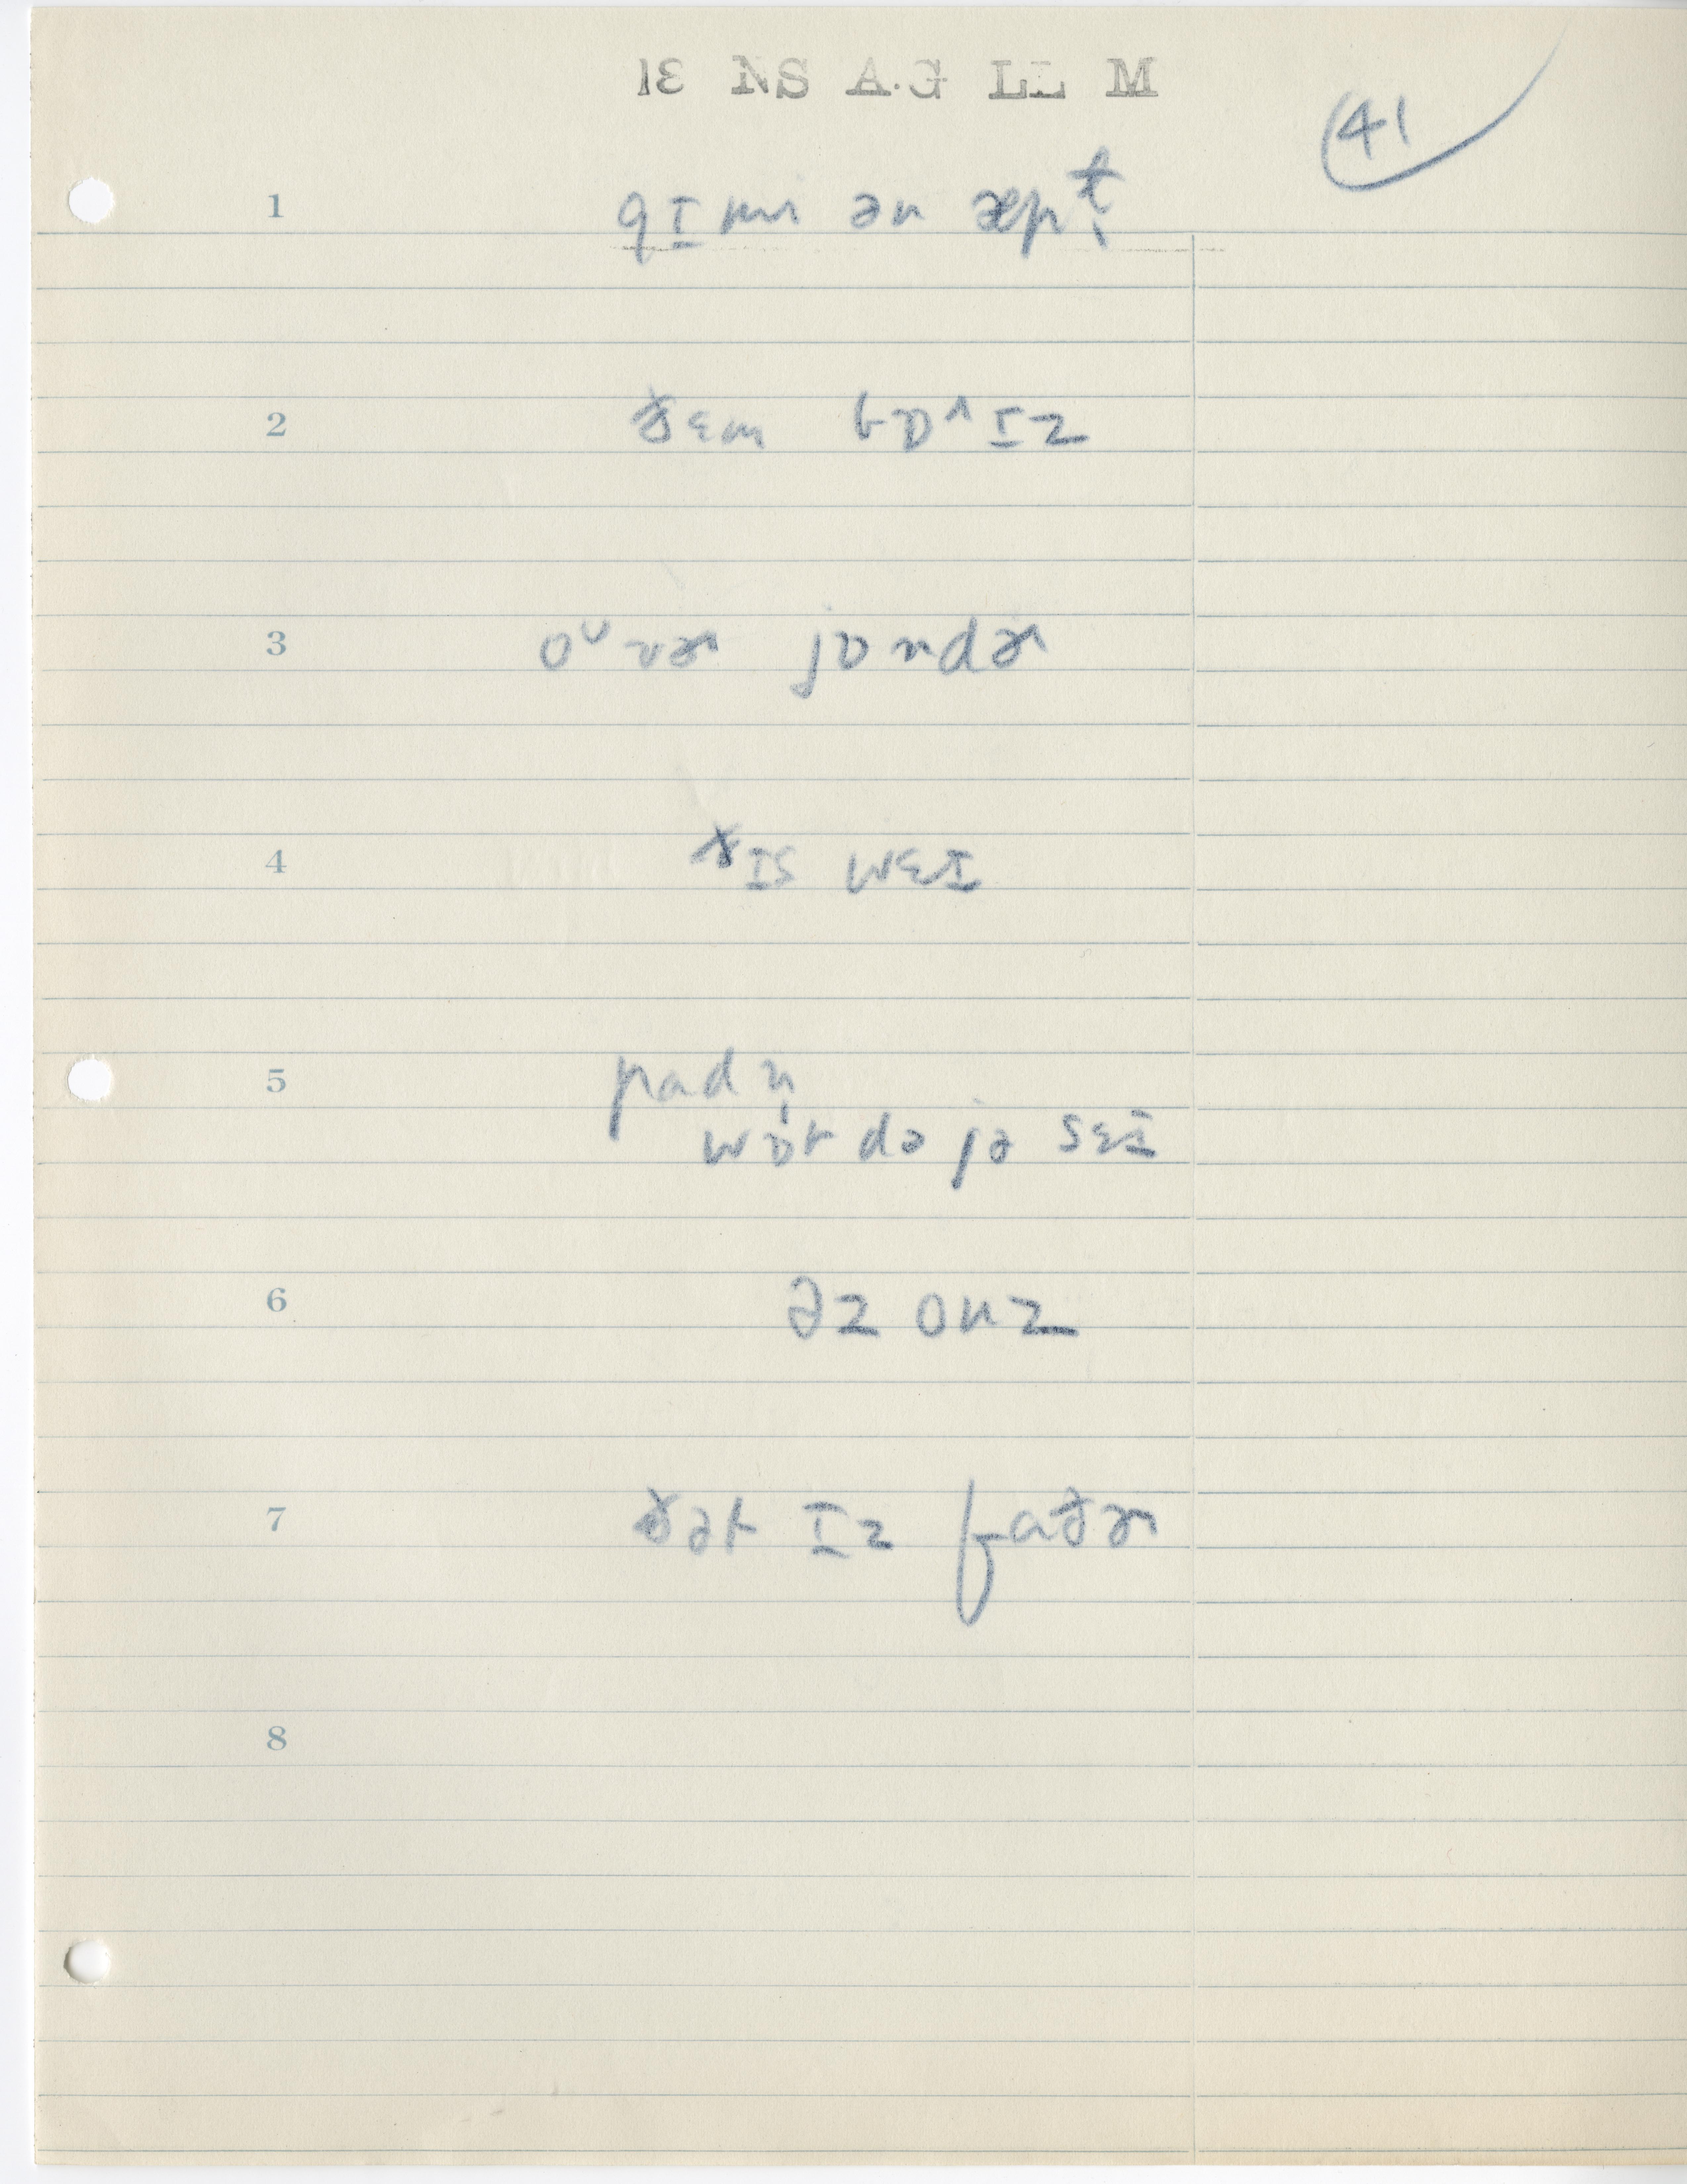 18 NS A.G LL M
41
1 gɪmi ən æpɫ̩
2 ðɛm bɒ^ɪz
3 oᴜvɚ jɒndɚ
4 ðɪs wɛɪ
5 padn̩
wɒt də jə sɛɪ
6 əz onz
7 ðət ɪz faðɚ
8